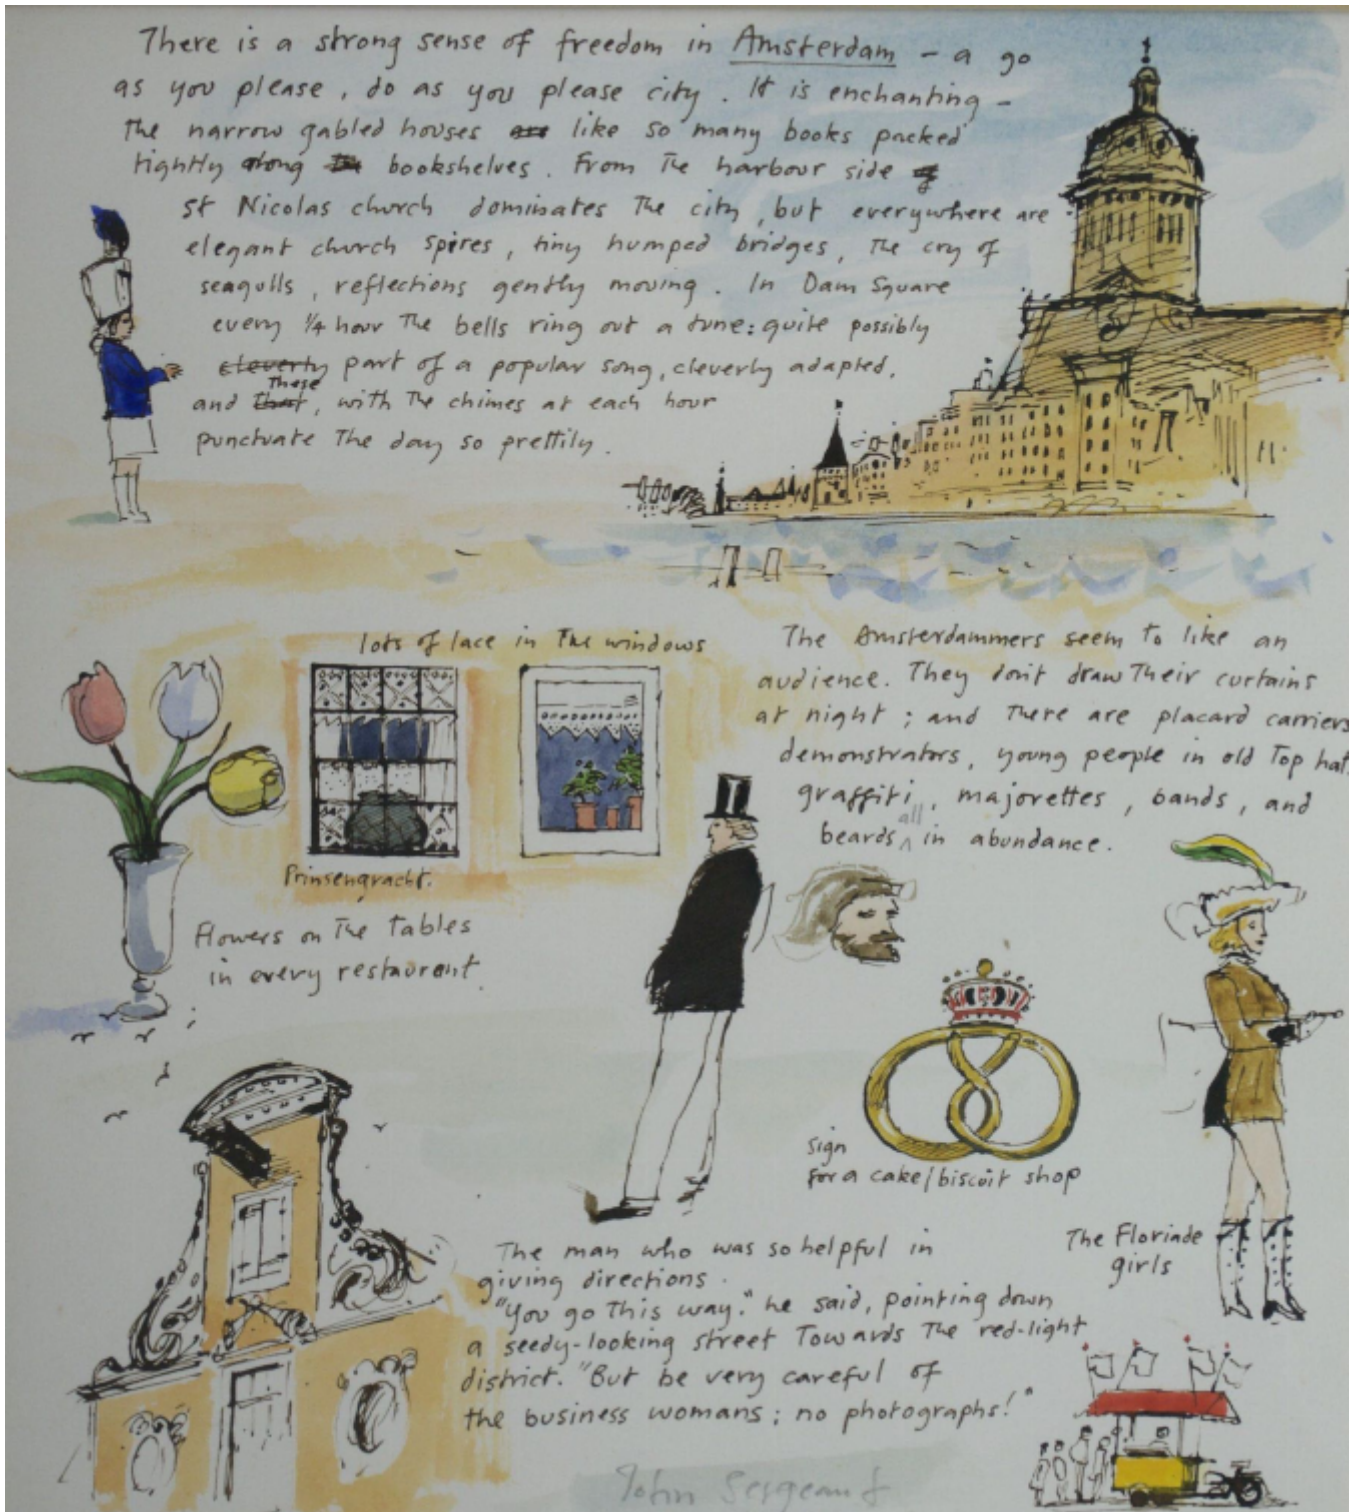 There is a strong sense of freedom in Amsterdam - a go
as you please, do as you please city. It is enchanting -
the narrow gabled houses are like so many books packed
tightly along the bookshelves. From the harbour side of
St Nicolas church dominates the city, but everywhere are
elegant church spires, tiny humped bridges, the cry of
seagulls, reflections gently moving. In Dam Square
every 1/4 hour the bells ring out a tune: quite possibly
cleverly part of a popular song, cleverly adapted,
These
and that, with the chimes at each hour
punctuate the day so prettily.
lots of lace in the windows
Prinsengracht.
Flowers on the tables
in every restaurant.
The Amsterdammers seem to like an
audience. They don't draw their curtains
at night; and there are placard carriers
demonstrators, young people in old top hat
graffiti, majorettes, bands, and
all
beards ^ in abundance.
sign
for a cake/biscuit shop
The Floriade
girls
The man who was so helpful in
giving directions.
"You go this way." he said, pointing down
a seedy-looking street towards the red-light
district. "But be very careful of
the business womans; no photographs!"
John Sergeant